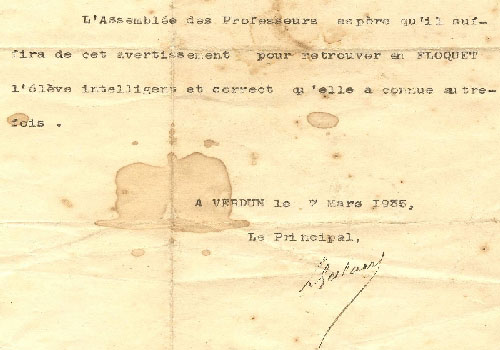 L'Assemblée des Professeurs espère qu'il suf-
fira de cet avertissement pour retrouver en FLOQUET
l'élève intelligent et correct qu'elle a connue autre-
fois .
A VERDUN le 7 Mars 1935,
Le Principal,